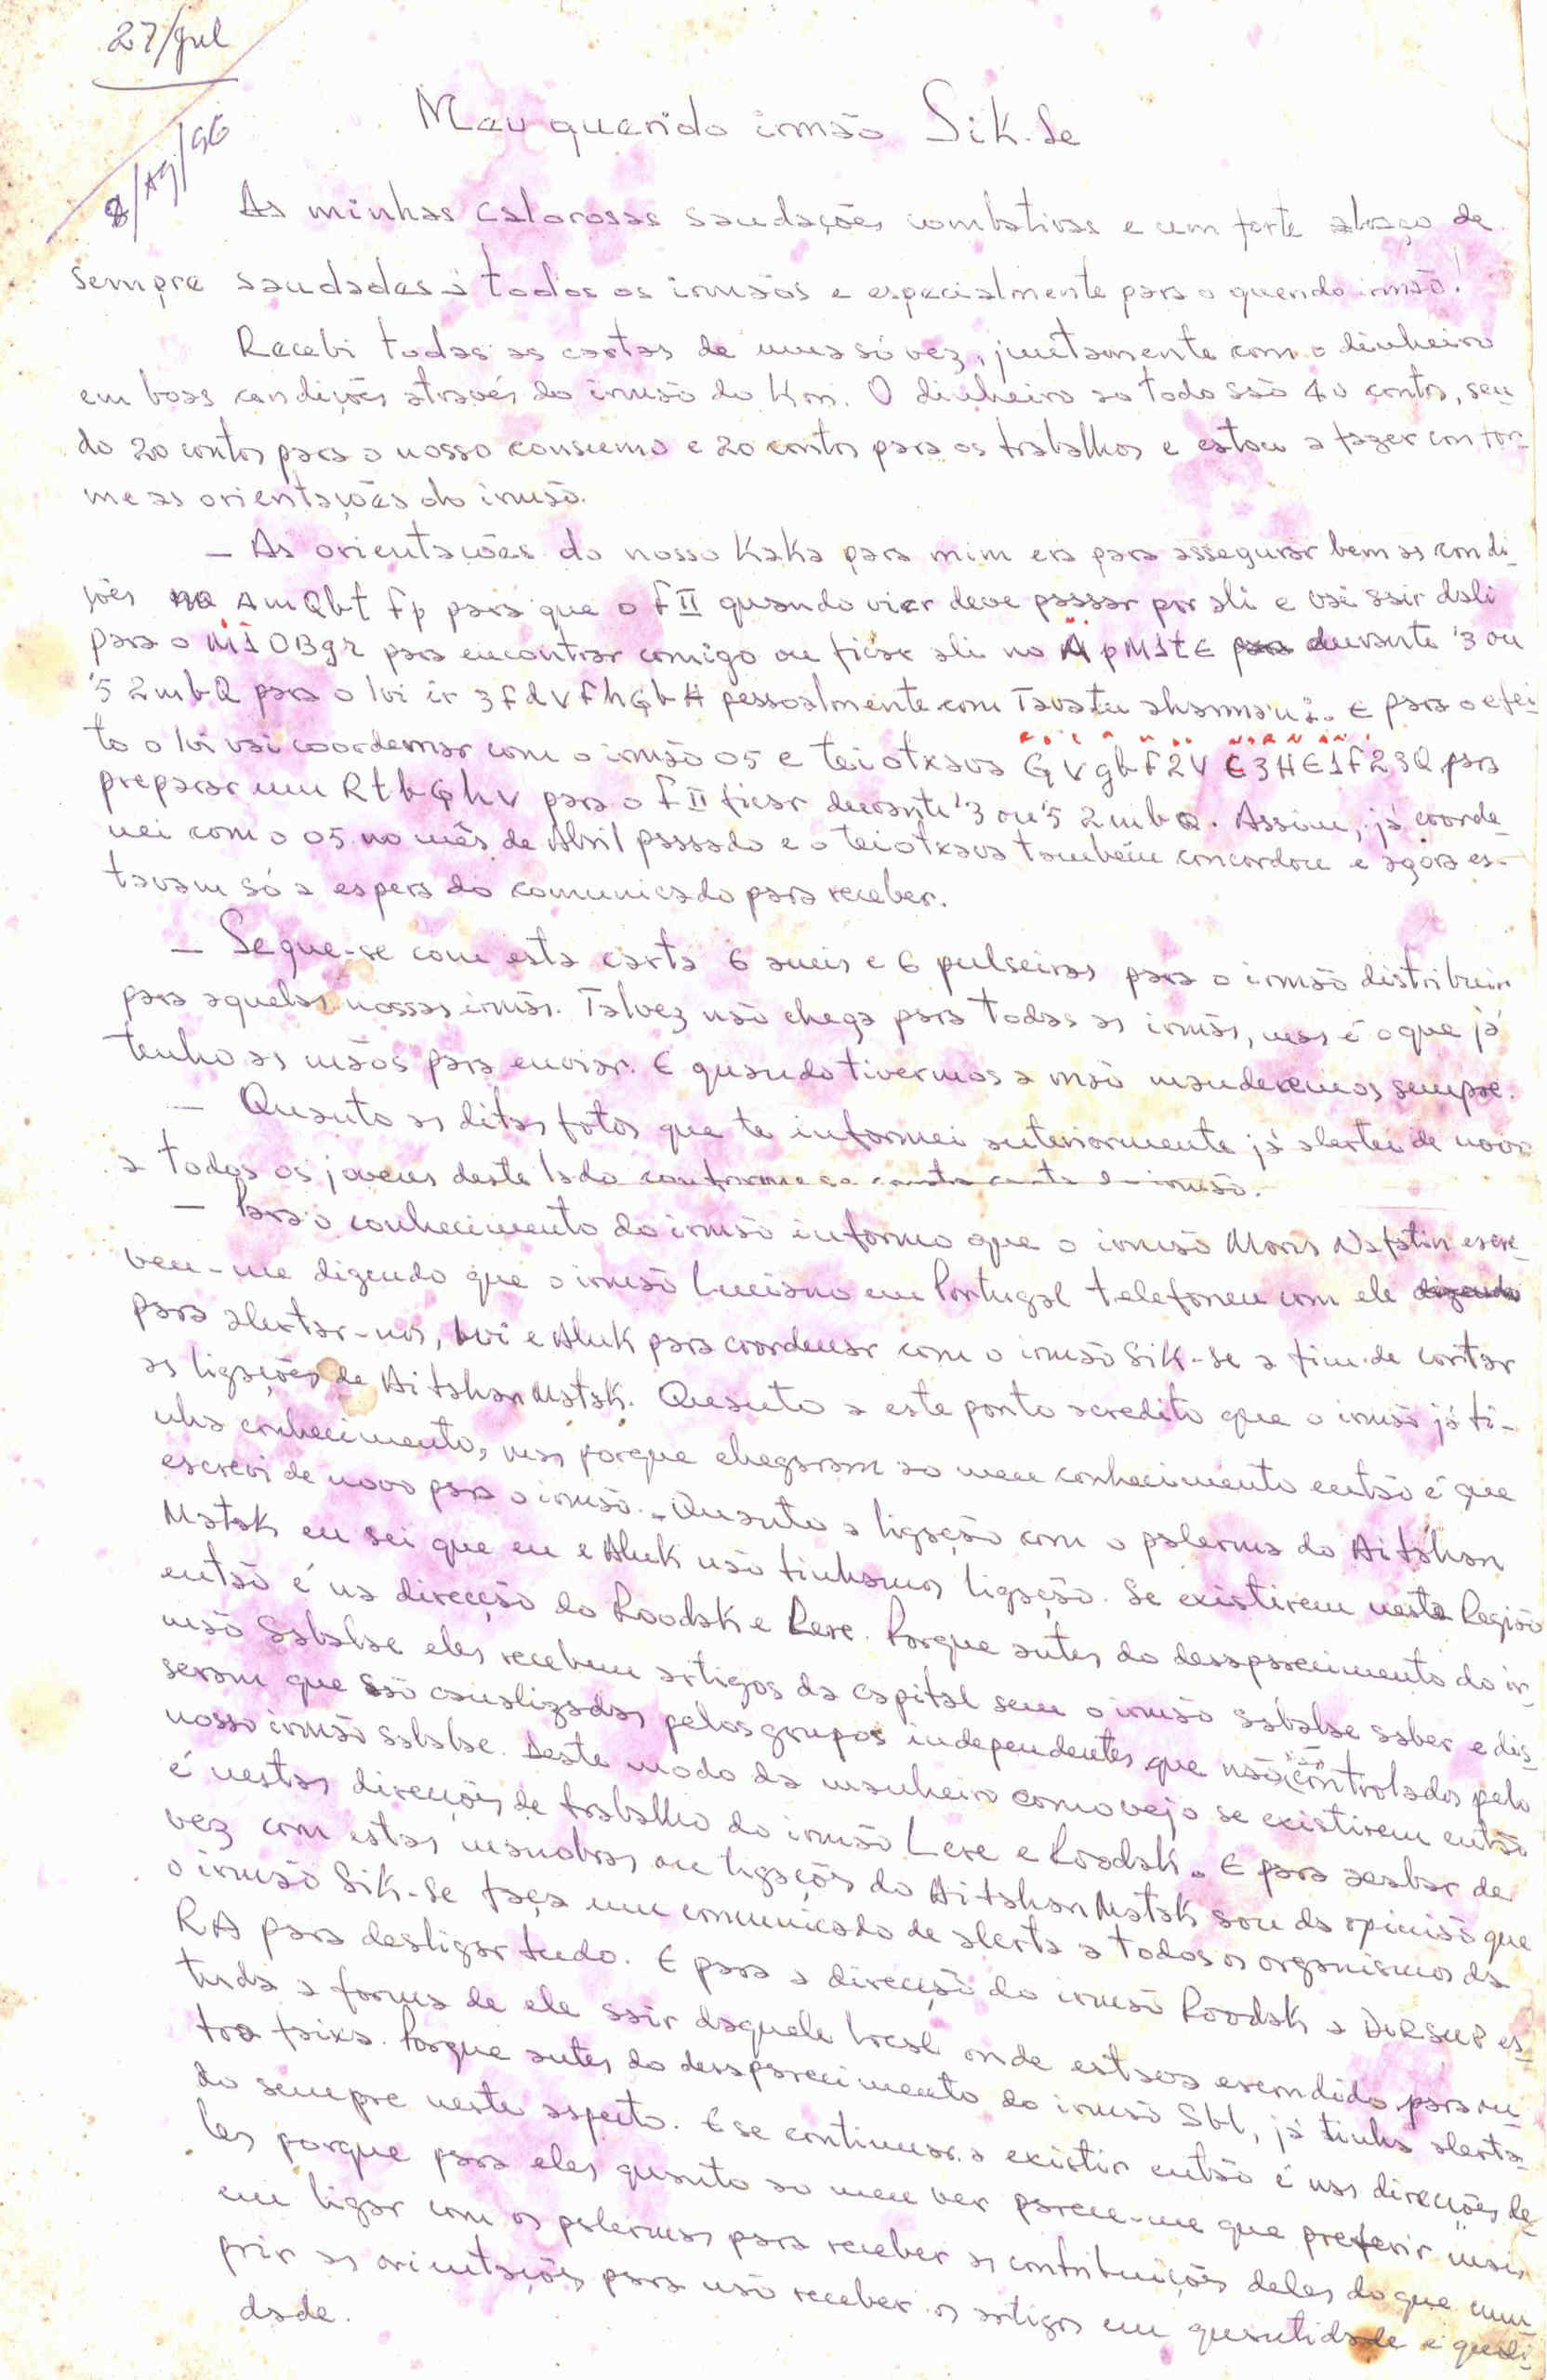 27/Jul
8/Ag/96
Meu querido irmão Sik-Se
As minhas calorosas saudações combativas e um forte abraço de
sempre saudades à todos os irmãos e especialmente para o querido irmão!
Recebi todas as cartas de uma só vez, juntamente com o dinheiro
em boas condições através do irmão do Kon. O dinheiro ao todo são 40 contos, sen-
do 20 contos para o nosso consumo e 20 contos para os trabalhos e estou a fazer confor-
me as orientações do irmão.
— As orientações do nosso Kaka para mim era para assegurar bem as condi-
ções na AmQbt fp para que o f II quando vier deve passar por ali e vai sair dali
para o M1OBgr para encontrar comigo ou ficar ali no ApM1tE para durante '3 ou
'5 2mbQ para o lvi ir 3fdVfhGbH pessoalmente com Tavatu ahamau i. E para o efei-
to o lvi vai coordernar com o irmão 05 e teiotxava GVgbF2V E3HE1F23Q para
preparar um RtbGhV para o f II ficar durante '3 ou '5 2mbQ. Assim, já coorde-
nei com o 05 no mês de Abril passado e o teiotxava também concordou e agora es-
tavam só a espera do comunicado para receber.
— Segue-se com esta carta 6 aneis e 6 pulseiras para o irmão distribuir
para aquelas nossas irmãs. Talvez não chega para todas as irmãs, mas é o que já
tenho as mãos para enviar. E quando tivermos a mão manderemos sempre.
— Quanto as ditas fotos que te informei anteriormente já alertei de novo
a todos os jovens deste lado conforme se consta carta do irmão.
— Para o conhecimento do irmão informo que o irmão Moris Nafatin escre-
veu-me dizendo que o irmão Luciano em Portugal telefoneu com ele dizendo
para alertar-nos, lvi e Aluk para coordenar com o irmão Sik-Se a fim de cortar
as ligações de Aitahan Matak. Quanto a este ponto acredito que o irmão já ti-
nha conhecimento, mas porque chegaram ao meu conhecimento então é que
escrevi de novo para o irmão. Quanto a ligação com o palerma do Aitahan
Matak eu sei que eu e Aluk não tinhamos ligação. Se existirem nesta Região
então é na direcção do Roodak e Lere. Porque antes do desaparecimento do ir-
mão Sabalae eles recebem artigos da capital sem o irmão Sabalae saber e dis-
seram que são canalizadas pelos grupos independentes que não são controlados pelo
nosso irmão Sabalae. Deste modo da manheira como vejo se existirem então
é nestas direcções de trabalho do irmão Lere e Roodak. E para acabar de
vez com estas manobras ou ligações do Aitahan Matak sou da opinião que
o irmão Sik-Se faça um comunicado de alerta a todos os organismos da
RA para desligar tudo. E para a direcção do irmão Roodak a DIRSUP es-
tuda a forma de ele sair daquele local onde estava escondido para ou-
tra faixa. Porque antes do desaparecimento do irmão Sbl, já tinha alerta-
do sempre neste aspecto. E se continuar a existir então é nas direcções de-
les porque para eles quanto ao meu ver parece-me que preferir mais
em ligar com os palermas para receber as contribuições deles do que cum-
prir as orientações para não receber os artigos em quantidade e quali-
dade.